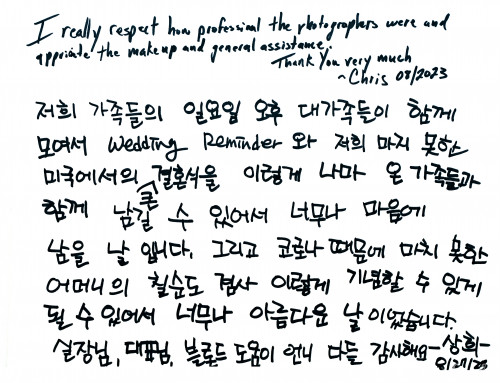 I really respect how professional the photographers were and
appriciate the makeup and general assistance.
Thank You very much
~Chris 08/2023
저희 가족들의 일요일 오후 대가족들이 함께
모여서 Wedding Reminder 와 저희 마치 못한
미국에서의 결혼식을 이렇게 나마 온 가족들과
함께 남길 수 있어서 너무나 마음에
남을 날 입니다. 그리고 코로나 때문에 마치 못한
어머니의 칠순도 겸사 이렇게 기념할 수 있게
될 수 있어서 너무나 아름다운 날이었습니다.
실장님, 대표님, 블론드 도움이 언니 다들 감사해요 -상희-
8/27/23